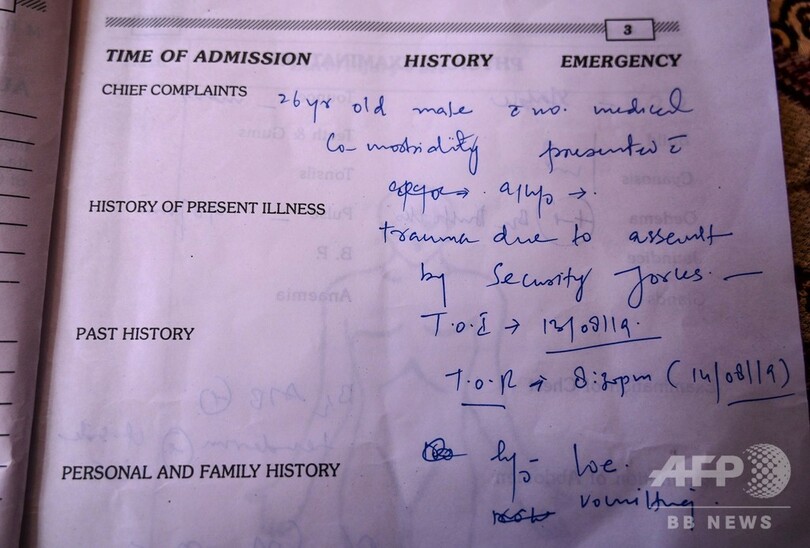 3
TIME OF ADMISSION HISTORY EMERGENCY
CHIEF COMPLAINTS
26 yr old male c̄ no. medical
Co-morbidity presented c̄
a/h/o →.
HISTORY OF PRESENT ILLNESS
trauma due to assault
by Security forces. —
PAST HISTORY
T.O.I → 13/08/19.
T.O.R → 8:30pm (14/08/19)
PERSONAL AND FAMILY HISTORY
h/o - LOC.
vomitting.
AFP
BB NEWS